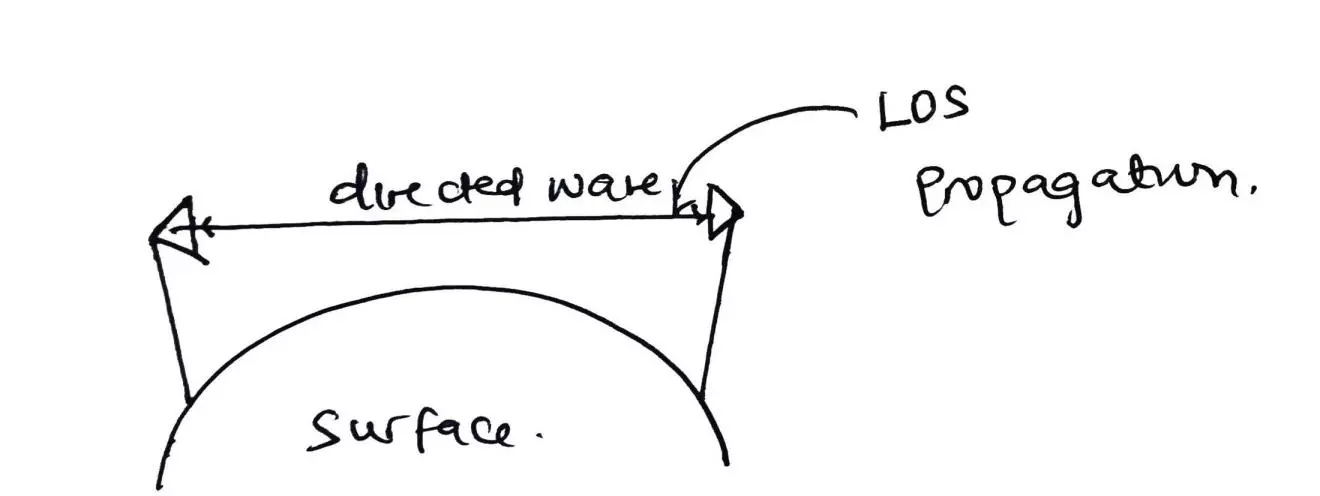 LOS
propagation.
directed wave
surface.